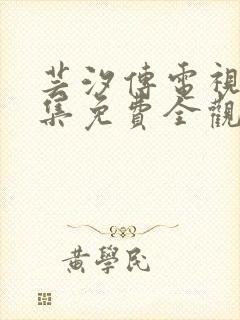 芸汐傳電視
集免費全觀
黃學民